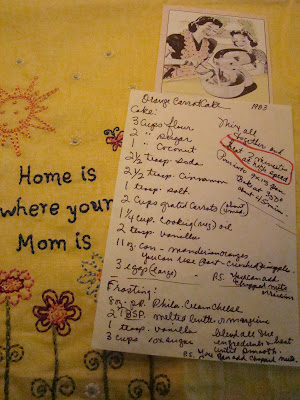 Home is
where your
Mom is
Orange Carrot Cake 1983
Cake:
3 Cups flour
2 " Sugar
1 " Coconut
2½ teasp. Soda
2½ teasp. Cinnamon
1 teasp. salt
2 Cups grated Carrots (about
1¼ cup Cooking (veg) oil
2 teasp. vanilla
11 oz. can - mandarin oranges
You can use Crushed pineapple
3 eggs (large)
Mix all
together and
Beat
at high speed
Bake at 350°
45 min.
P.S. You can add
Chopped nuts
Raisins
Frosting:
8 oz. Phila. Cream Cheese
2 TBSP. melted butter or margarine
1 teasp. vanilla
3 cups sugar
blend all the
ingredients & beat
until smooth
P.S. You can add chopped nuts